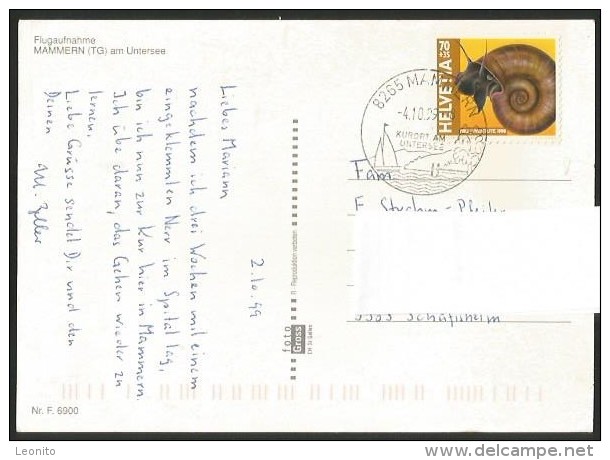 Flugaufnahme
MAMMERN (TG) am Untersee.
2.10.99
Liebes Mariann
nachdem ich drei Wochen mit einem
eingeklemmten Nerv im Spital lag,
bin ich nun zur Kur hier in Mammern.
Ich übe daran, das Gehen wieder zu
lernen.
Liebe Grüsse sendet Dir und den
Deinen
M. Zeller
Nr. F. 6900
foto
Gross
CH St. Gallen
Reproduktion verboten
70
+35
HELVETIA
PRO JUVENTUTE 1998
8265 MAMMERN
-4.10.99
KURORT AM
UNTERSEE
Fam.
Schafisheim
Leonito
www.delcampe.net